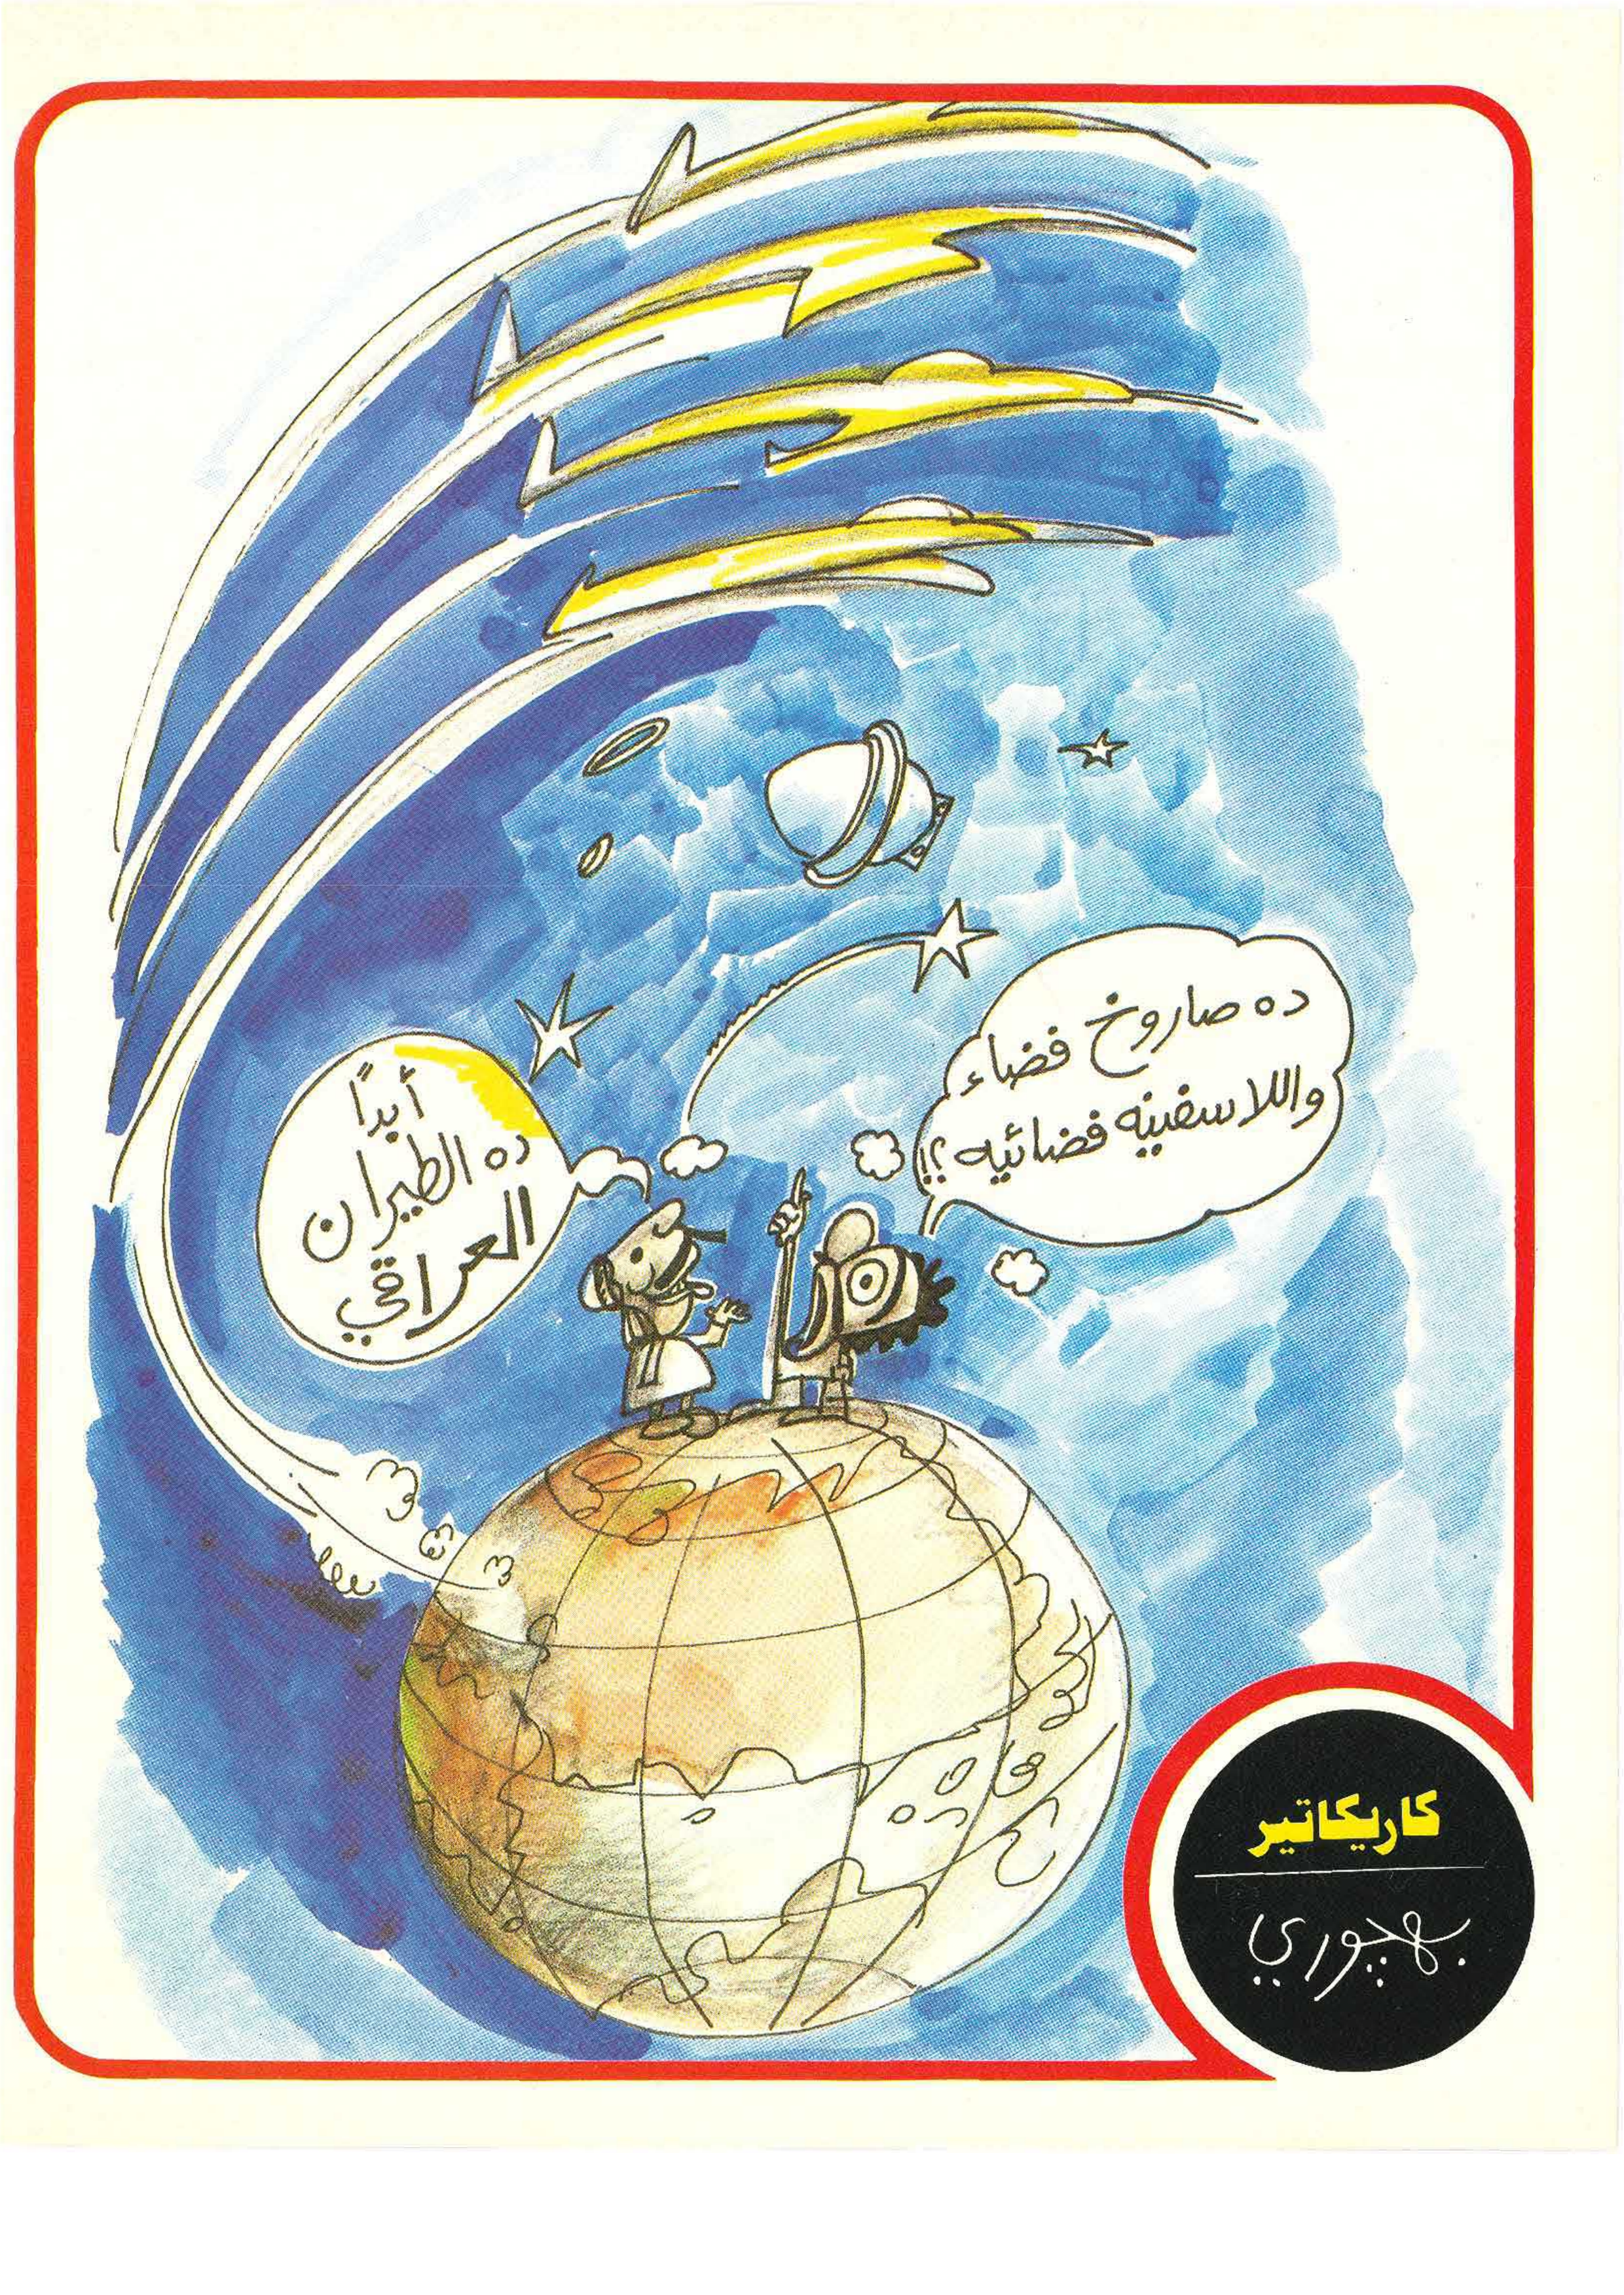 ده صاروخ فضاء
واللا سفينه فضائيه ؟!
أبداً
ده الطيران
العراقي
كاريكاتير
بهچوري